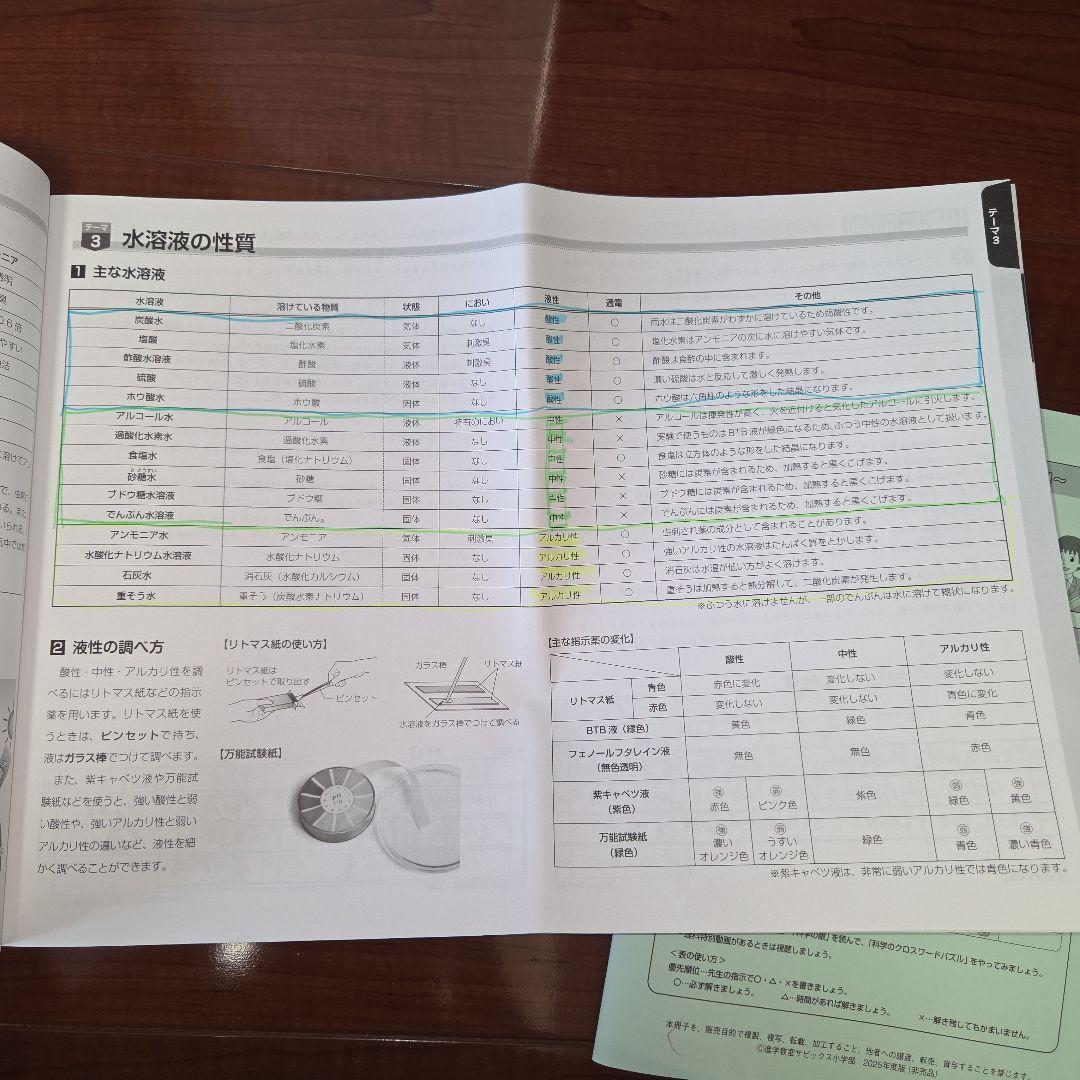 ニア
透明
06倍
やすい
テーマ3
テーマ 3 水溶液の性質
1 主な水溶液
水溶液 溶けている物質 状態 におい 液性 通電 その他
炭酸水 二酸化炭素 気体 なし 酸性 ○ 雨水は二酸化炭素がわずかに溶けているため弱酸性です。
塩酸 塩化水素 気体 刺激臭 酸性 ○ 塩化水素はアンモニアの次に水に溶けやすい気体です。
酢酸水溶液 酢酸 液体 刺激臭 酸性 ○ 酢酸は食酢の中に含まれます。
硫酸 硫酸 液体 なし 酸性 ○ 濃い硫酸は水と反応して激しく発熱します。
ホウ酸水 ホウ酸 固体 なし 酸性 ○ ホウ酸は六角柱のような形をした結晶になります。
アルコール水 アルコール 液体 特有のにおい 中性 × アルコールは揮発性が高く、火を近付けると気化したアルコールに引火します。
過酸化水素水 過酸化水素 液体 なし 中性 × 実験で使うものはBTB液が緑色になるため、ふつう中性の水溶液として扱います。
食塩水 食塩（塩化ナトリウム） 固体 なし 中性 ○ 食塩は立方体のような形をした結晶になります。
砂糖水 さとうすい 砂糖 固体 なし 中性 × 砂糖には炭素が含まれるため、加熱すると黒くこげます。
ブドウ糖水溶液 ブドウ糖 固体 なし 中性 × ブドウ糖には炭素が含まれるため、加熱すると黒くこげます。
でんぷん水溶液 でんぷん※ 固体 なし 中性 × でんぷんには炭素が含まれるため、加熱すると黒くこげます。
アンモニア水 アンモニア 気体 刺激臭 アルカリ性 ○ 虫刺され薬の成分として含まれることがあります。
水酸化ナトリウム水溶液 水酸化ナトリウム 固体 なし アルカリ性 ○ 強いアルカリ性の水溶液はたんぱく質をとかします。
石灰水 消石灰（水酸化カルシウム） 固体 なし アルカリ性 ○ 消石灰は水温が低い方がよく溶けます。
重そう水 重そう（炭酸水素ナトリウム） 固体 なし アルカリ性 ○ 重そうは加熱すると熱分解して、二酸化炭素が発生します。
※ふつう水に溶けませんが、一部のでんぷんは水に溶けて糊状になります。
2 液性の調べ方
酸性・中性・アルカリ性を調
べるにはリトマス紙などの指示
薬を用います。リトマス紙を使
うときは、ピンセットで持ち、
液はガラス棒でつけて調べます。
また、紫キャベツ液や万能試
験紙などを使うと、強い酸性と弱
い酸性や、強いアルカリ性と弱い
アルカリ性の違いなど、液性を細
かく調べることができます。
【リトマス紙の使い方】
リトマス紙は
ピンセットで取り出す
ピンセット
ガラス棒 リトマス紙
水溶液をガラス棒でつけて調べる
【万能試験紙】
pH
【主な指示薬の変化】
酸性 中性 アルカリ性
リトマス紙 青色 赤色に変化 変化しない 変化しない
赤色 変化しない 変化しない 青色に変化
BTB液（緑色） 黄色 緑色 青色
フェノールフタレイン液
（無色透明） 無色 無色 赤色
紫キャベツ液
（紫色） 強 赤色 弱 ピンク色 紫色 弱 緑色 強 黄色
万能試験紙
（緑色） 強 濃い オレンジ色 弱 うすい オレンジ色 緑色 弱 青色 強 濃い青色
※紫キャベツ液は、非常に弱いアルカリ性では青色になります。
を読んで、「科学のクロスワードパズル」をやってみましょう。
理科特別動画があるときは視聴しましょう。
＜表の使い方＞
優先順位…先生の指示で○・△・×を書きましょう。
○…必ず解きましょう。 △…時間があれば解きましょう。 ×…解き残してもかまいません。
本冊子を、販売目的で複製、複写、転載、加工すること、他者への譲渡、転売、貸与することを禁じます。
©進学教室サピックス小学部 2025年度版（非売品）